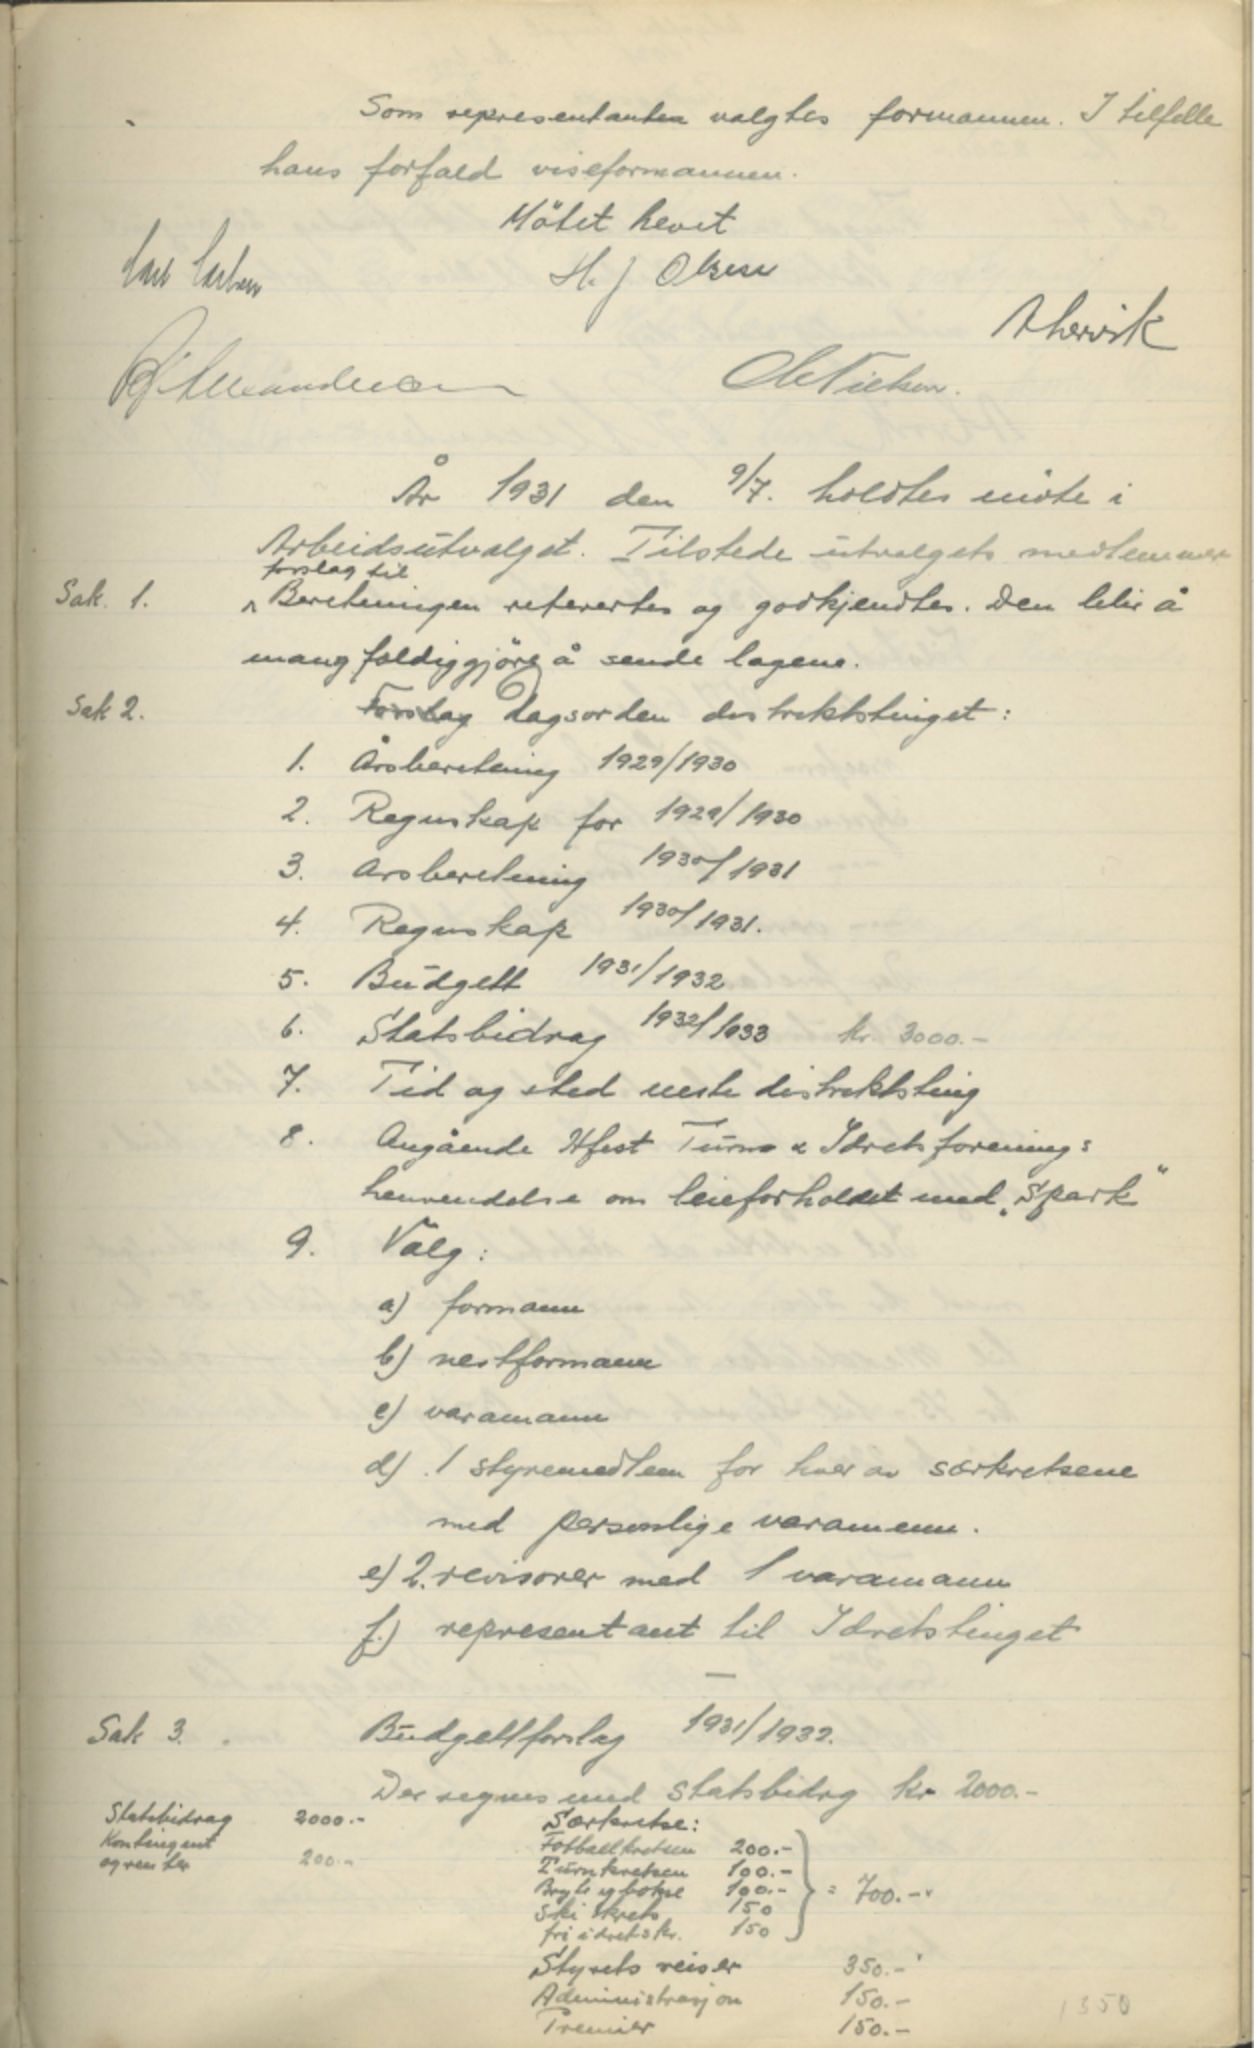 Som representanter valgtes formannen. I tilfelle
hans forfald viseformannen.
Mötet hevet
Carl Carlsen H. J Olsen
A hervik
Ole Nielsen.
År 1931 den 9/7. holdtes møte i
Arbeidsutvalget. Tilstede utvalgets medlemmer
forslag til
Sak. 1. Beretningen refertes og godkjendtes. Den blir å
mangfoldiggjöre å sende lagene.
Sak 2. Forslag dagsorden distriktstinget:
1. Årsberetning 1929/1930
2. Regnskap for 1929/1930
3. Årsberetning 1930/1931
4. Regnskap 1930/1931.
5. Budgett 1931/1932
6. Statsbidrag 1932/1933 kr. 3000.-
7. Tid og sted neste distriktsting
8. Angående Hfest Turn & Idretsforenings
henvendelse om leieforholdet med „Spark"
9. Valg:
a) formann
b) nestformann
c) varamann
d) 1 styremedlem for hver av særkretsene
med personlige varamenn.
e) 2. revisorer med 1 varamann
f.) representant til Idretstinget
—
Sak 3. Budgettforslag 1931/1932.
Der regnes med statsbidrg kr 2000.-
Statsbidrag 2000.- Særkretse:
Kontingent Fotballkretsen 200.-
og renter 200.- Turnkretsen 100.-
Bryte og bokse 100.- = 700.-
Ski krets 150
fri idrets kr. 150
Styrets reiser 350.-
Administrasjon 150.- 1350
Premier 150.-